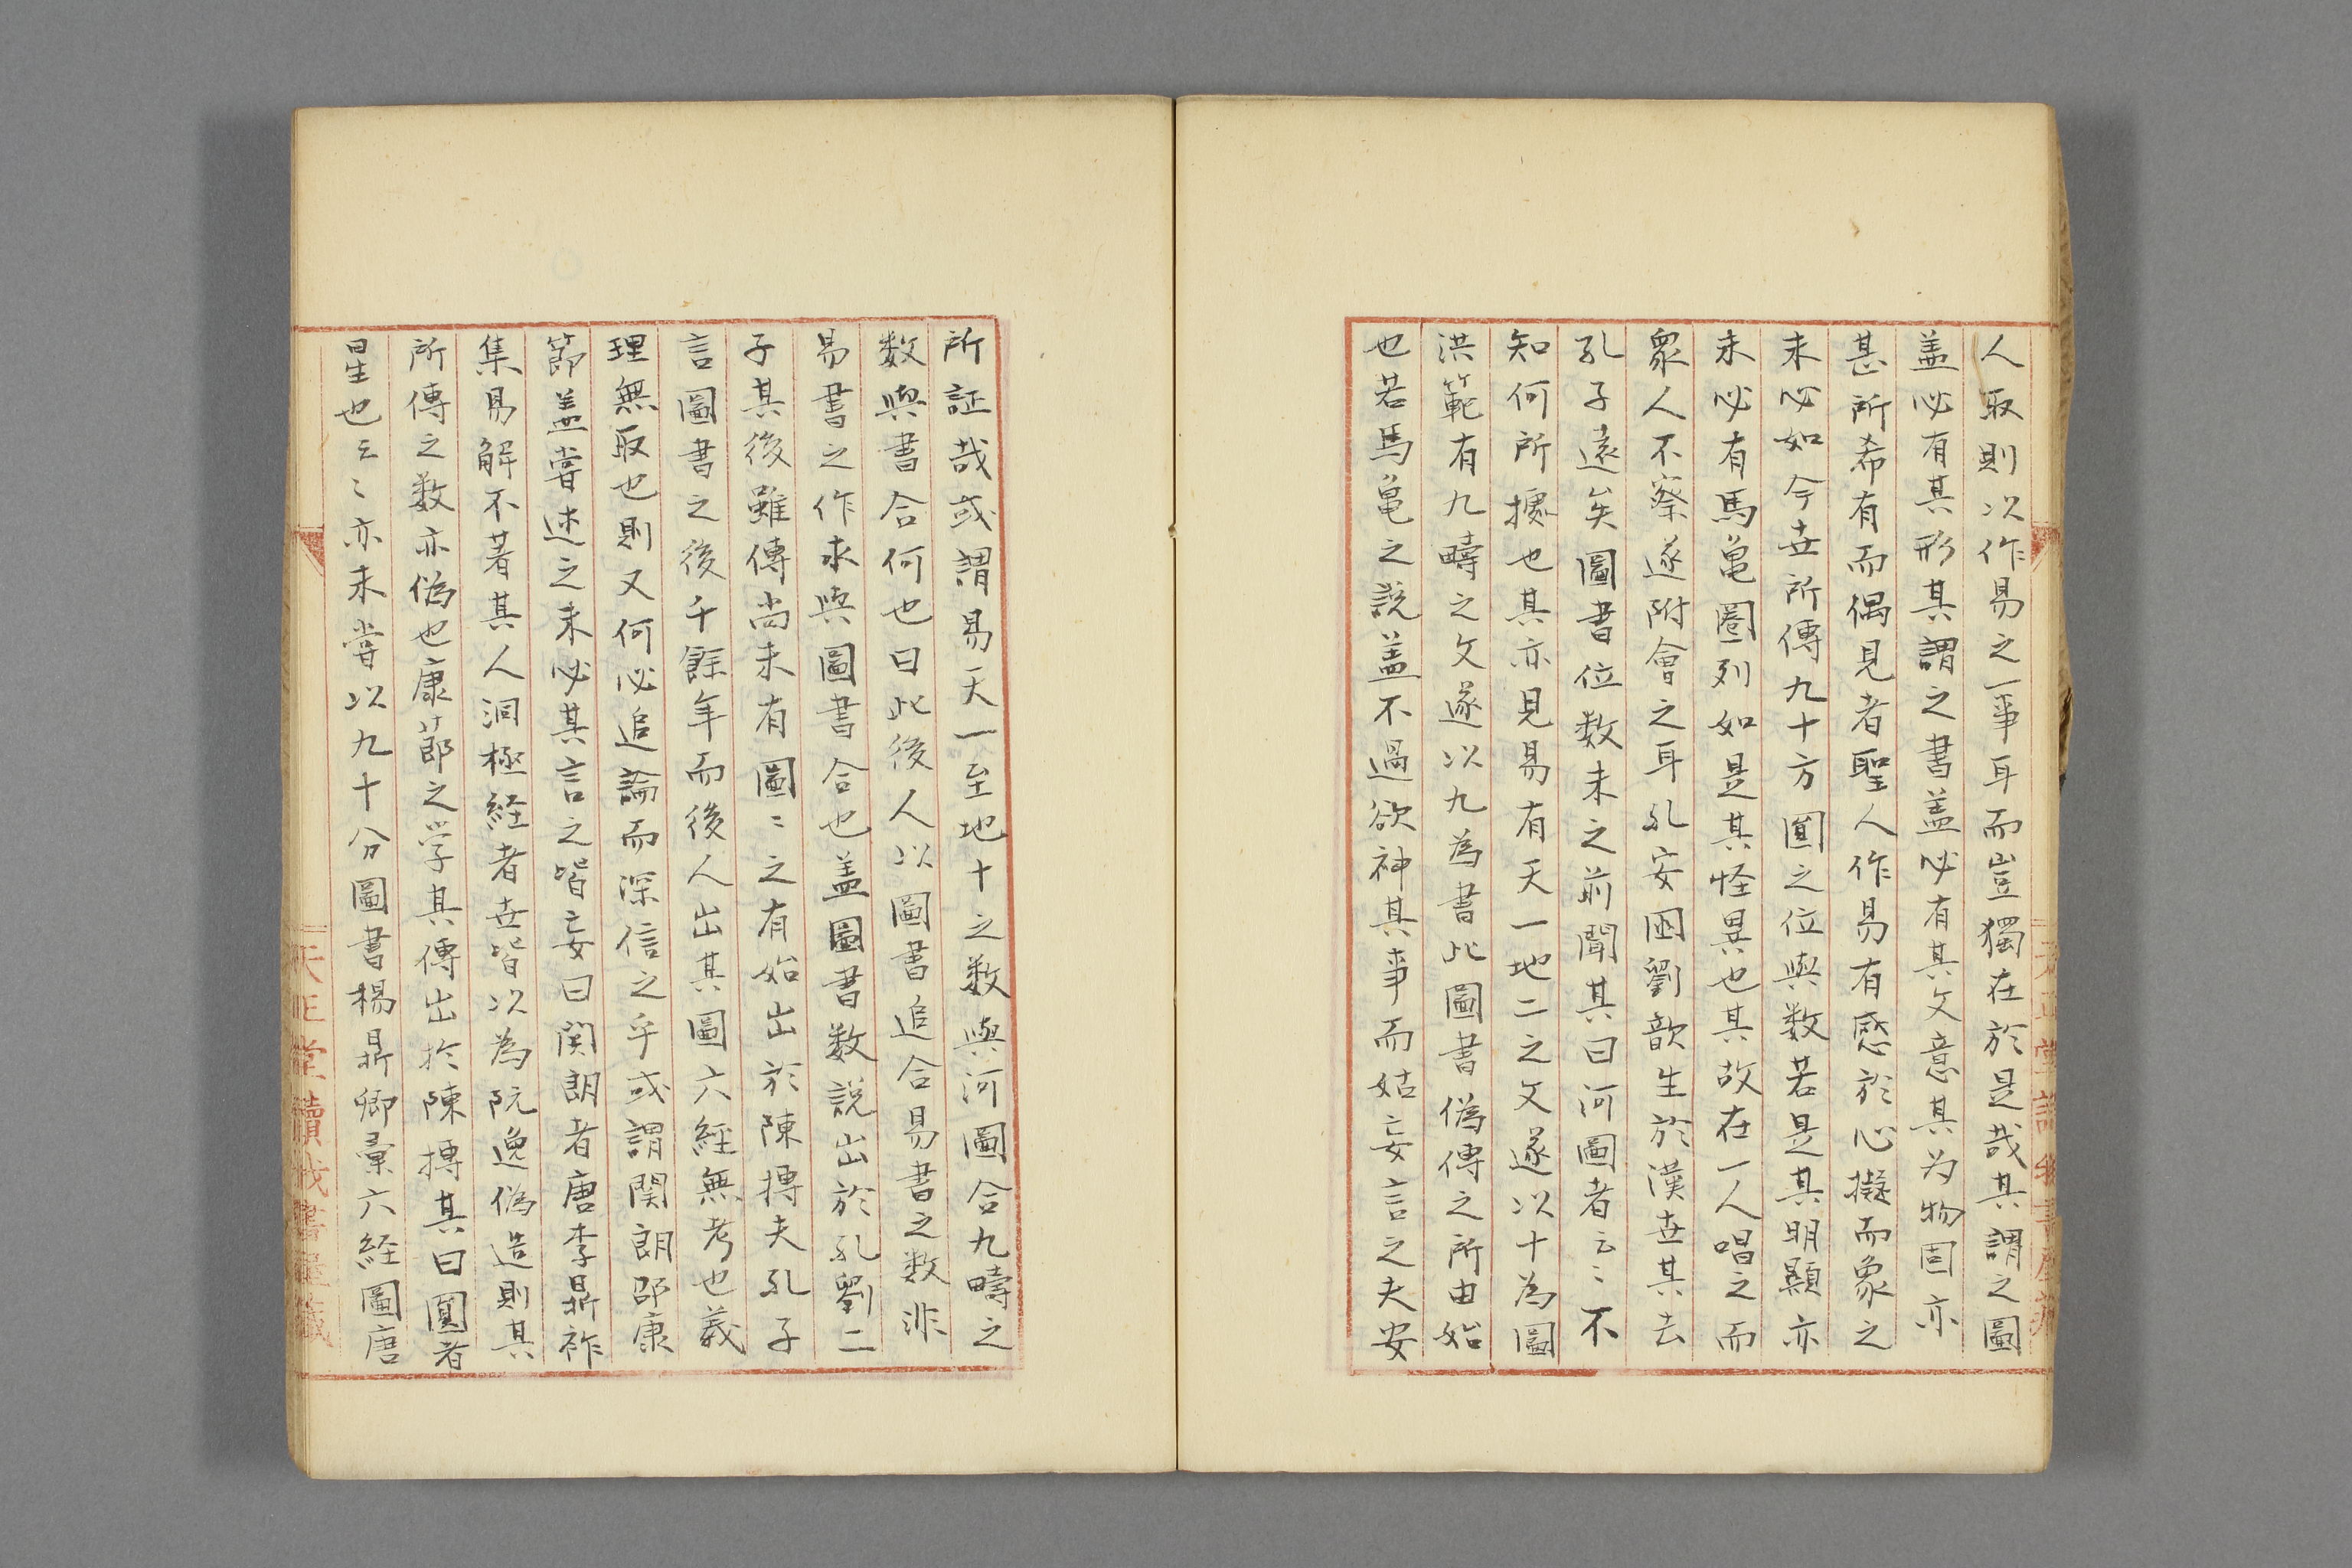 人取則以作易之一事耳而豈獨在於是哉其謂之圖
盖必有其形其謂之書盖必有其文意其为物固亦
甚所希有而偶見者聖人作易有感於心擬而象之
未必如今世所傳九十方圓之位與数若是其明顯亦
未必有馬亀圏列如是其怪異也其故在一人唱之而
衆人不察遂附會之耳孔安国劉歆生於漢世其去
孔子遠矣圖書位数未之前聞其曰河圖者云〻不
知何所據也其亦見易有天一地二之文遂以十為圖
洪範有九疇之文遂以九為書此圖書偽傳之所由始
也若馬亀之説盖不過欲神其事而姑妄言之夫安
所証哉或謂易天一至地十之数與河圖合九疇之
数與書合何也曰此後人以圖書追合易書之数非
易書之作求與圖書合也盖圖書数説出於孔劉二
子其後雖傳尚未有圖〻之有始出於陳摶夫孔子
言圖書之後千餘年而後人出其圖六經無考也義
理無取也則又何必追論而深信之乎或謂関朗邵康
節盖嘗述之未必其言之皆妄曰関朗者唐李鼎祚
集易解不著其人洞極経者世皆以為阮逸偽造則其
所傳之数亦偽也康莭之学其傳出於陳摶其曰圓者
星也云〻亦未嘗以九十分圖書楊鼎卿彙六経圖唐
天正堂讀我書屋藏